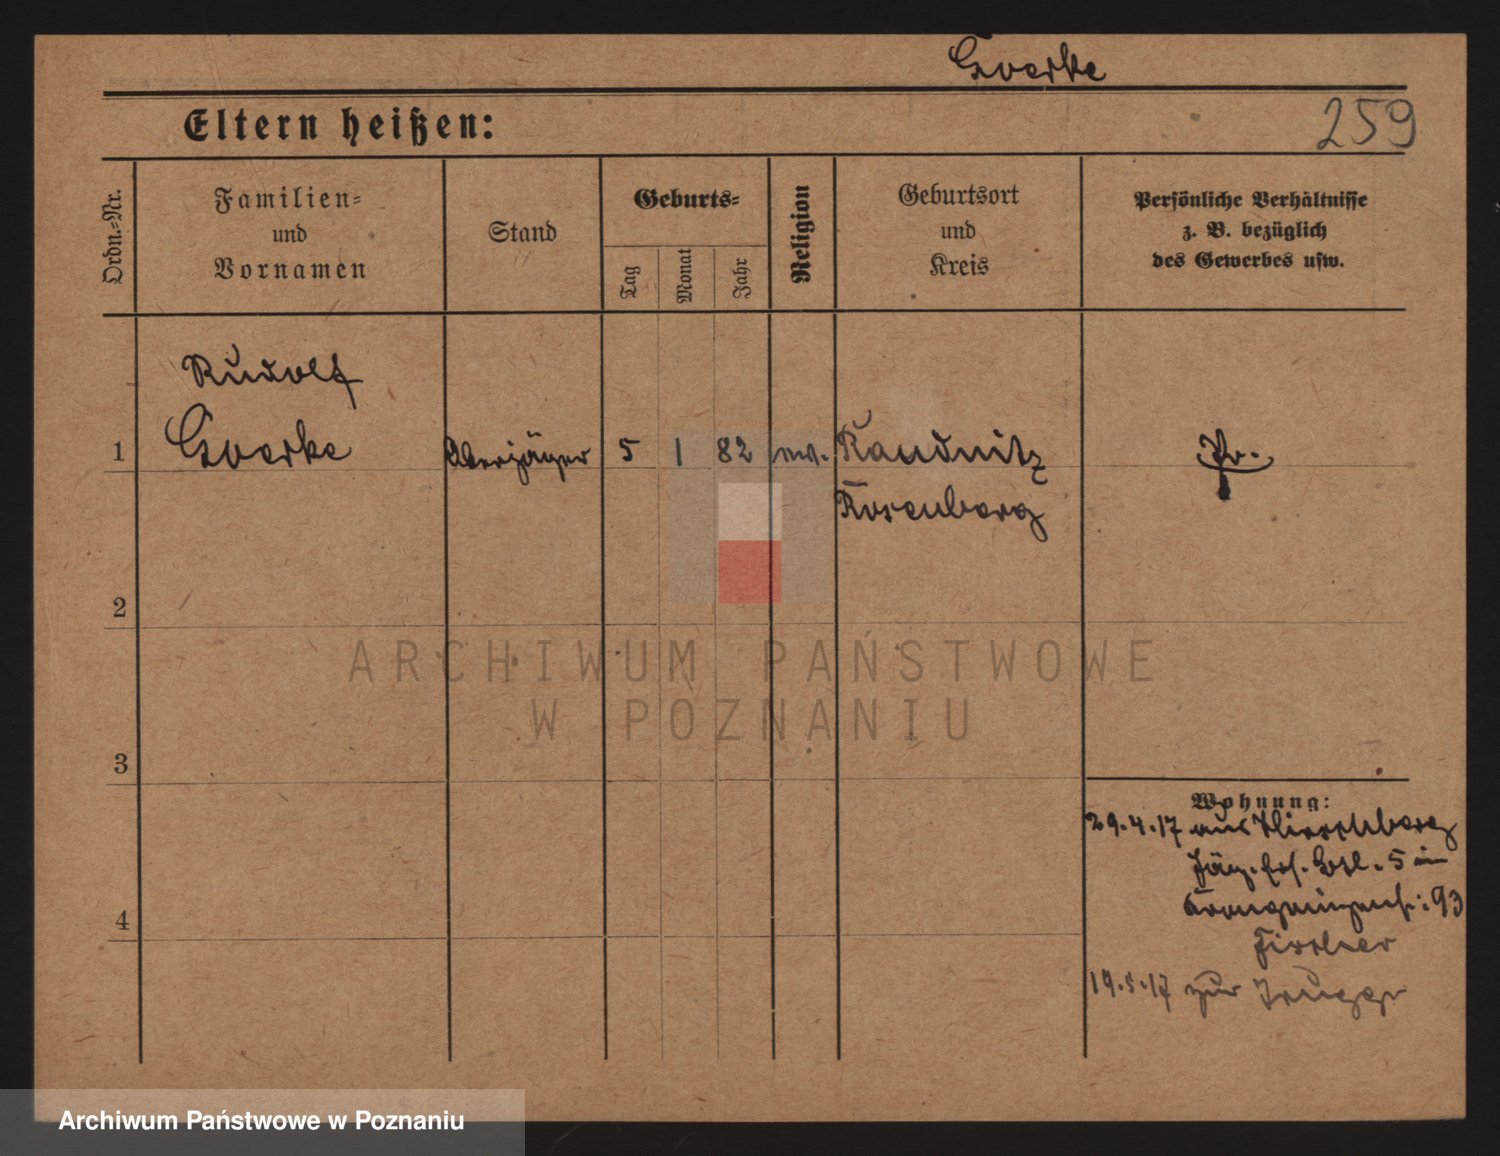 Goerke
259
Eltern heißen:
Ordn.-Nr.
Familien-
und
Vornamen
Stand
Geburts-
Tag
Monat
Jahr
Religion
Geburtsort
und
Kreis
Persönliche Verhältnisse
z. B. bezüglich
des Gewerbes usw.
Rudolf
1 Goerke Oberjäger 5 1 82 ev. Raudnitz Pr.
Rosenberg
2
3
4
Wohnung:
29.4.17 aus Hirschberg
Jäg. Ers. Btl. 5 in
93
Fischer
19.5.17 zur Truppe
ARCHIWUM PAŃSTWOWE
W POZNANIU
Archiwum Państwowe w Poznaniu